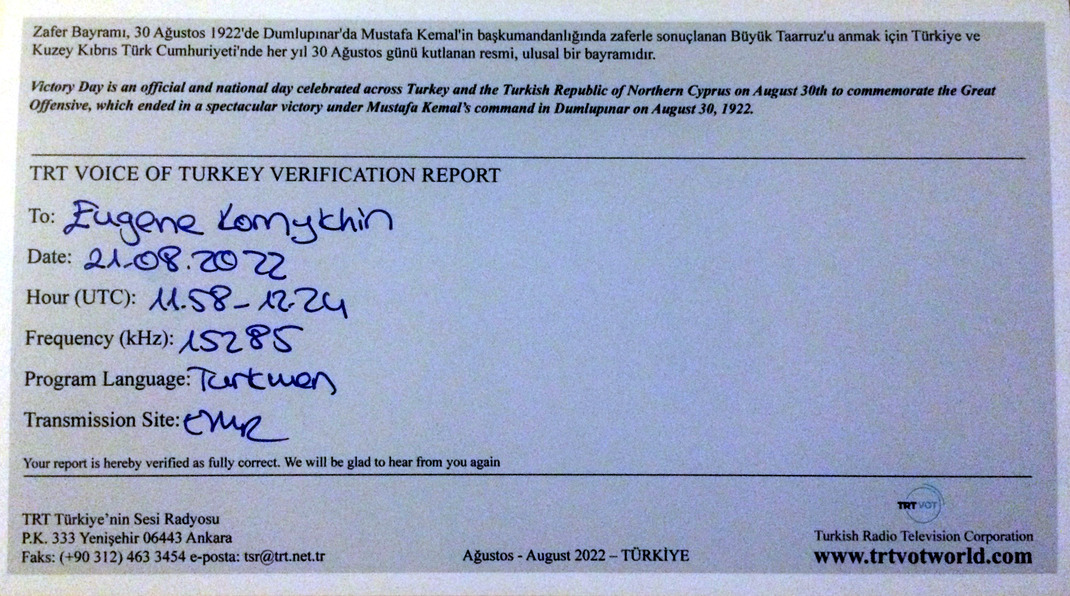 Zafer Bayramı, 30 Ağustos 1922'de Dumlupınar'da Mustafa Kemal'in başkumandanlığında zaferle sonuçlanan Büyük Taarruz'u anmak için Türkiye ve
Kuzey Kıbrıs Türk Cumhuriyeti'nde her yıl 30 Ağustos günü kutlanan resmi, ulusal bir bayramıdır.
Victory Day is an official and national day celebrated across Turkey and the Turkish Republic of Northern Cyprus on August 30th to commemorate the Great
Offensive, which ended in a spectacular victory under Mustafa Kemal's command in Dumlupınar on August 30, 1922.
TRT VOICE OF TURKEY VERIFICATION REPORT
To: Eugene Komykhin
Date: 21.08.2022
Hour (UTC): 11.58-12.24
Frequency (kHz): 15285
Program Language: Turkmen
Transmission Site: EMR
Your report is hereby verified as fully correct. We will be glad to hear from you again
TRT Türkiye'nin Sesi Radyosu
P.K. 333 Yenişehir 06443 Ankara
Faks: (+90 312) 463 3454 e-posta: tsr@trt.net.tr
Ağustos - August 2022 – TÜRKİYE
TRT VOT
Turkish Radio Television Corporation
www.trtvotworld.com